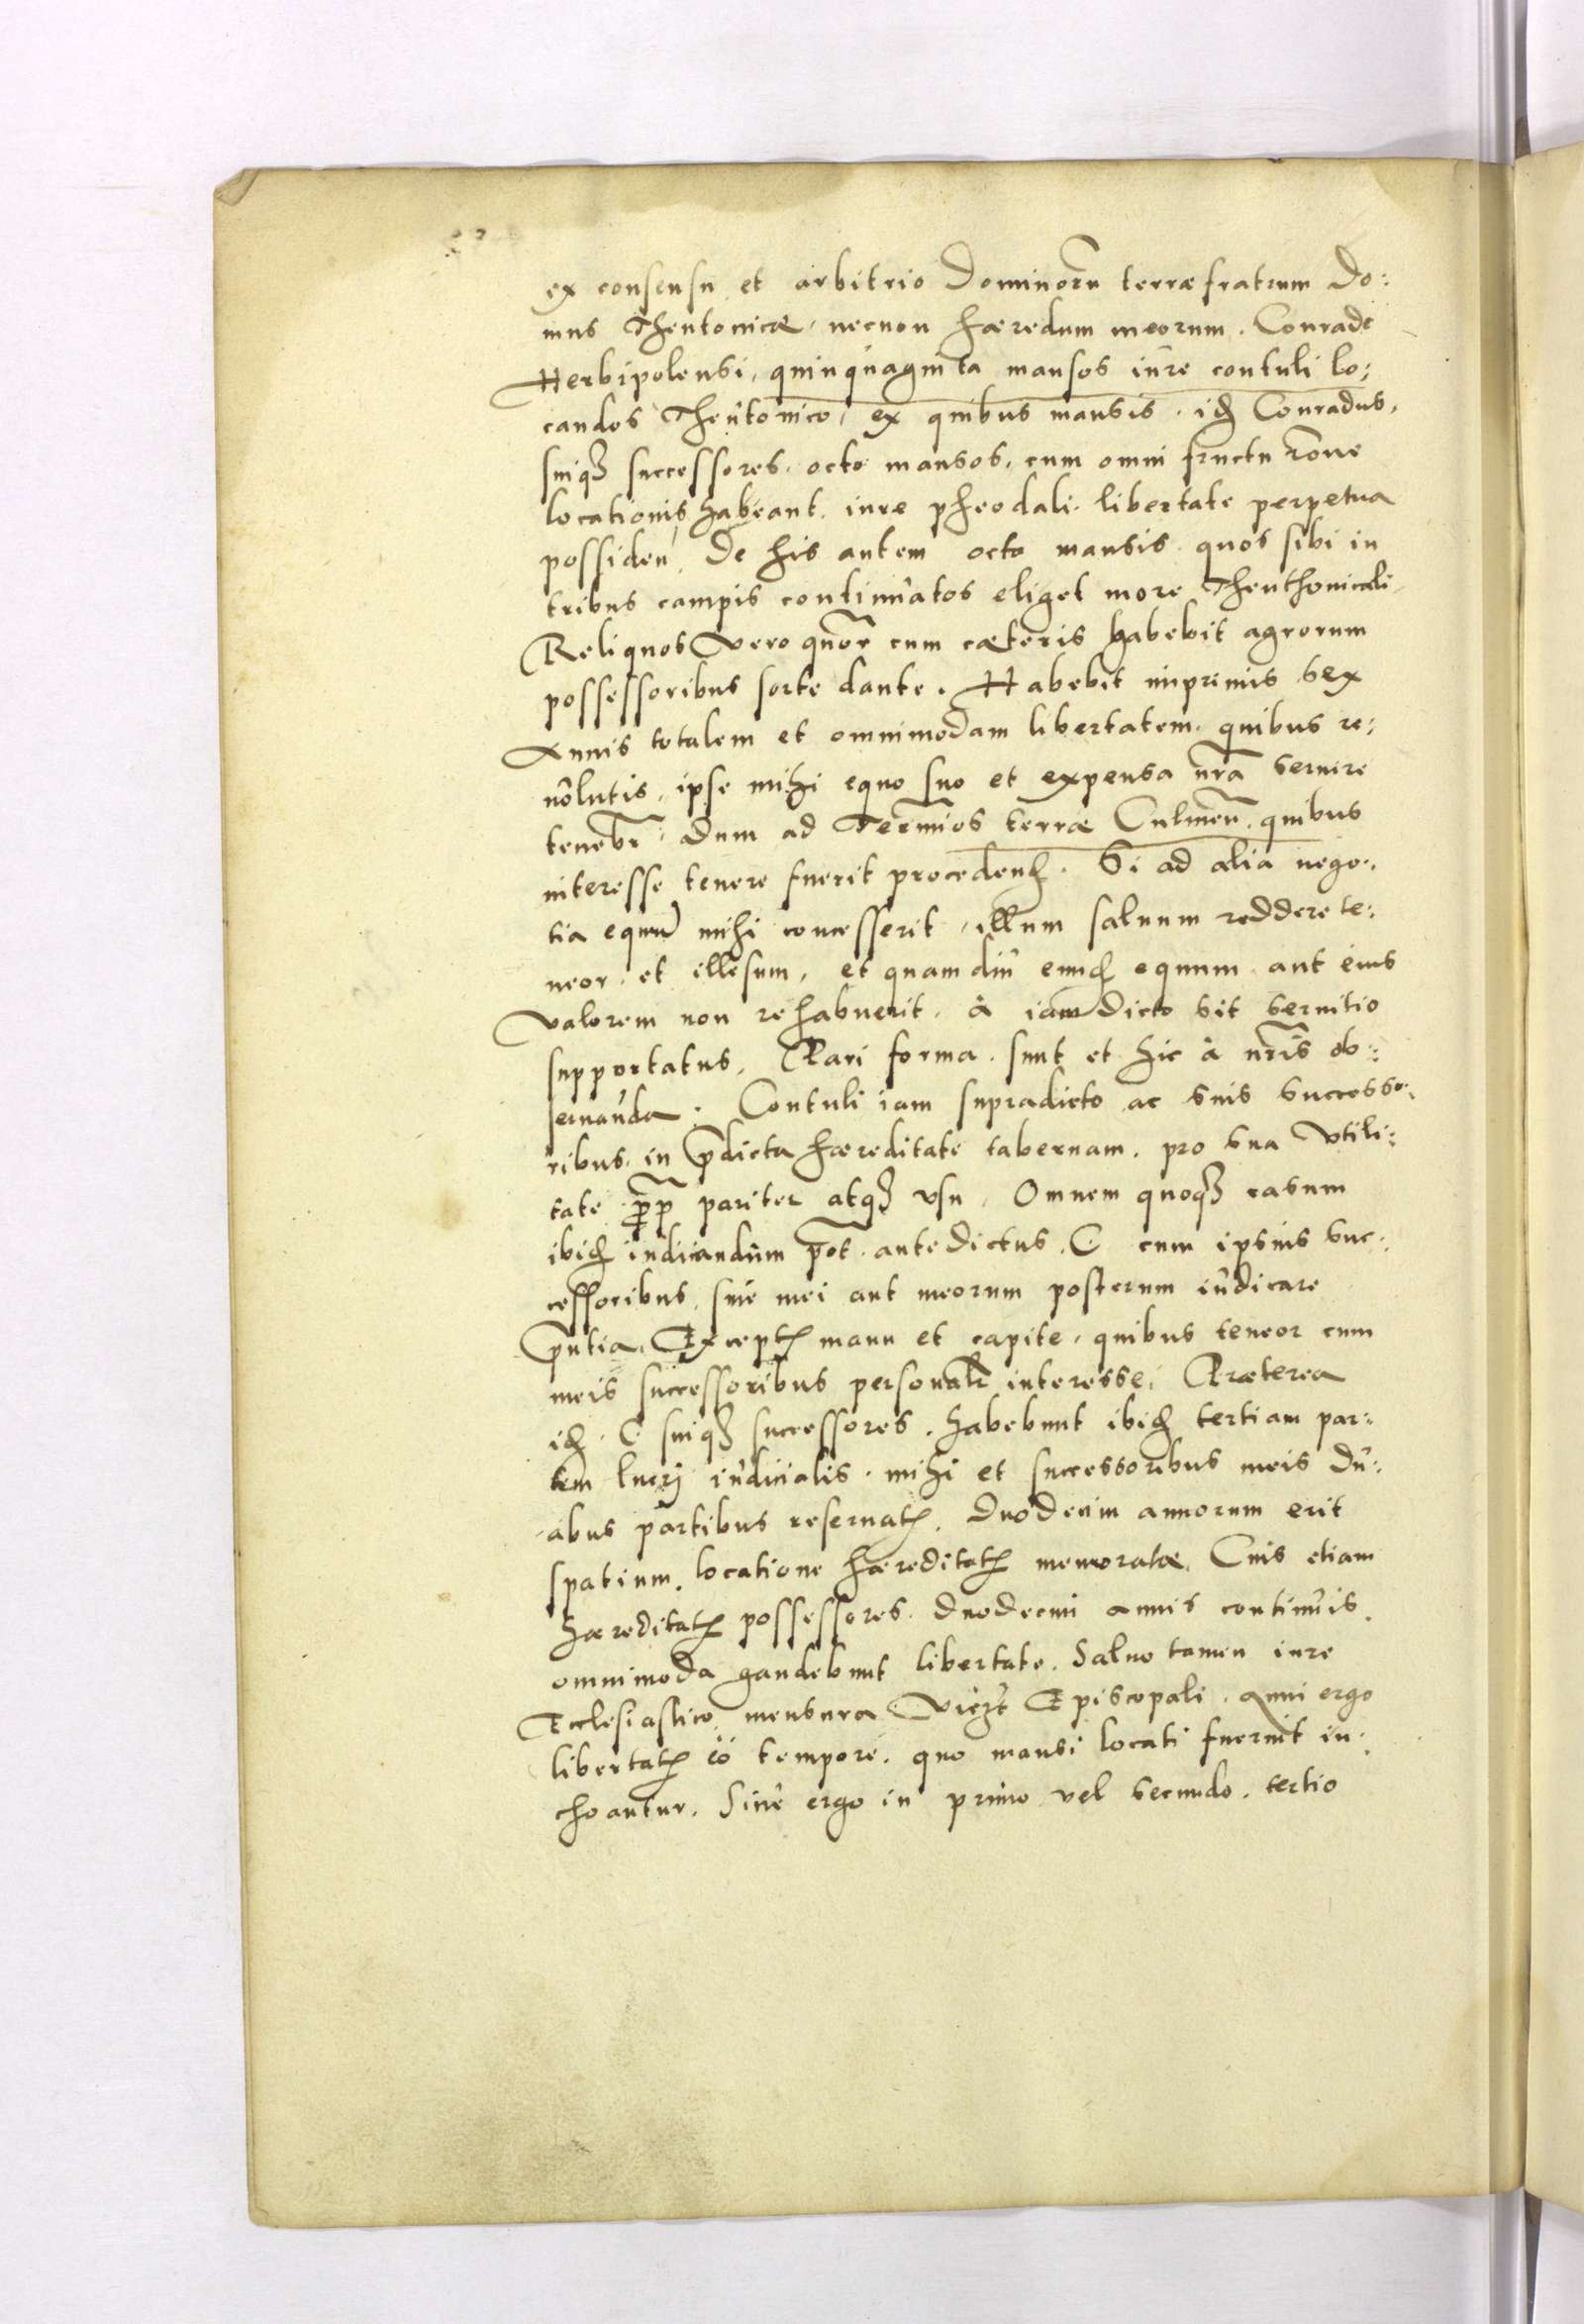 ex consensu et arbitrio Dominorũ terræ fratrum do:
mus Theutonicæ, necnon hæredum meorum. Conrado
Herbipolensi, quinquaginta mansos iure contuli lo:
candos Theutonico, ex quibus mansis. id Conradus,
suiqʒ successores. octo mansos, cum omni fructu rõne
locationis habeant. iure pheodali. libertate perpetua
possiden̄, De his autem octo mansis. quos sibi in
tribus campis continuatos eliget more Theuthonicali.
Reliquos vero quor̃ cum cæteris habebit agrorum
possessoribus sorte dante. Habebit imprimis sex
Annis totalem et omnimodam libertatem. quibus re:
uolutis, ipse mihi equo suo et expensa nr̃a seruire
tenebr̃. dum ad Terminos terræ Culmeñ. quibus
interesse tenere fuerit procedend. Si ad alia nego:
tia equũ mihi concesserit, illum saluum reddere te:
neor. et illesum, et quamdiu eund equum. aut eius
valorem non rehabuerit. à iam dicto sit seruitio
supportatus, Pari forma. sunt et hic à nr̃is ob:
seruanda. Contuli iam supradicto ac suis successo:
ribus. in p̃dicta hæreditate tabernam. pro sua vtili:
tate p̱p̃ pariter atqʒ vsu. Omnem quoqʒ casum
ibid iudicandum p̃ot. antedictus. C. cum ipsius suc:
cessoribus. siue mei aut meorum posterum iudicare
p̃ntia, Exceptis manu et capite, quibus teneor cum
meis successoribus personalr̃ interesse, Præterea
id. C. suiqʒ successores. habebunt ibid tertiam par:
tem lucrij iudicialis. mihi et successoribus meis du:
abus partibus reseruatis. Duodecim annorum erit
spatium. locatione hæreditatis memoratæ, Cuis etiam
hæreditatis possessores. duodecim annis continuis.
omnimoda gaudebunt libertate. Saluo tamen iure
Ecclesiastico, mensura Episcopali. Anni ergo
libertatis eo tempore. quo mansi locati fuerint in:
choantur. Siue ergo in primo vel secundo. tertio